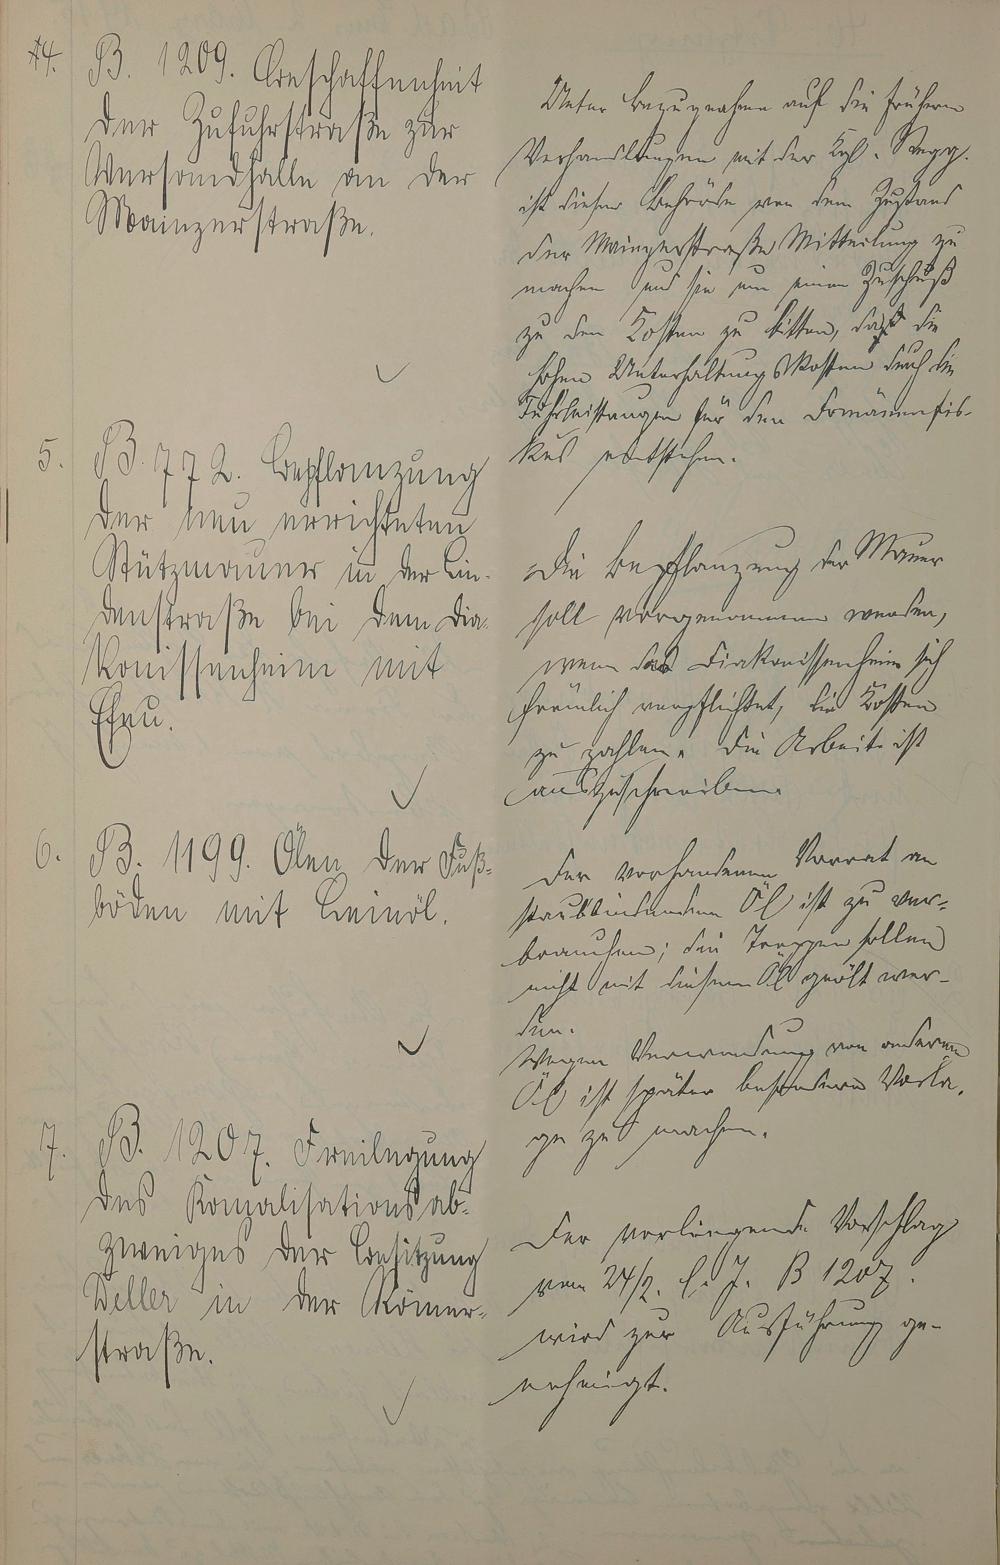 44.
B. 1209. Beschaffenheit
der Zufuhrstraße zur
Versandhalle an der
Mainzerstraße.
Unter Bezugnahme auf die frühern
Verhandlungen mit der Kgl. Regg.
ist dieser Behörde von dem Zustand
der Mainzerstraße Mitteilung zu
machen und sie um einen Zuschuß
zu den Kosten zu bitten, da die
hohen Unterhaltungskosten durch die
Fuhrleistungen für den Domänenfis-
kus entstehen.
5.
B. 772. Bepflanzung
der neu errichteten
Stützmauer in der Lin-
denstraße bei dem Dia-
konissenheim mit
Efeu.
Die Bepflanzung der Mauer
soll vorgenommen werden,
wenn das Diakonissenheim sich
verpflichtet, die Kosten
zu zahlen. Die Arbeit ist
auszuschreiben.
6.
B. 1199. Ölen der Fuß-
böden mit Leinöl.
Der vorhandene Vorrat an
staubbindendem Öl ist zu ver-
brauchen; die Treppen sollen
nicht mit diesem Öl geölt wer-
den.
Wegen Verwendung von anderem
Öl ist später besondere Vorla-
ge zu machen.
7.
B. 1207. Freilegung
des Kanalisationsab-
zweiges der Besitzung
Weller in der Römer-
straße.
Der vorliegende Vorschlag
vom 24/2. l. J. B 1207.
wird zur Ausführung ge-
nehmigt.